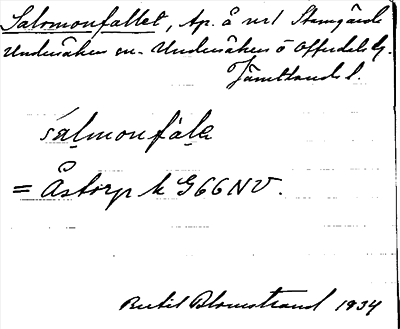 Salomonfallet, Ap. å nr 1 Stamgärde
Undersåkers sn. Undersåkers o Offerdals tg.
Jämtlands l.
salmonfale
= Åstorp k G66NV.
Bertil Blomstrand 1934